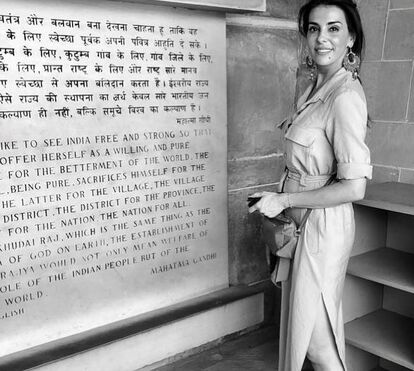 स्वतंत्र और बलवान बना देखना चाहता हूं ताकि वह
के लिए स्वेच्छा पूर्वक अपनी पवित्र आहुति दे सके।
कुटुम्ब के लिए, कुटुम्ब गांव के लिए, गांव जिले के लिए,
के लिए, प्रान्त राष्ट्र के लिए और राष्ट्र सारे मानव
के लिए स्वेच्छा से अपना बलिदान करता है। ईश्वरीय
ऐसे राज्य की स्थापना का अर्थ केवल सारे भारतीय जन
कल्याण ही नहीं, बल्कि समूचे विश्व का कल्याण है।
महात्मा गाँधी
LIKE TO SEE INDIA FREE AND STRONG SO THAT
OFFER HERSELF AS A WILLING AND PURE
E FOR THE BETTERMENT OF THE WORLD. THE
L,BEING PURE,SACRIFICES HIMSELF FOR THE
THE LATTER FOR THE VILLAGE, THE VILLAGE
DISTRICT, THE DISTRICT FOR THE PROVINCE,
FOR THE NATION THE NATION FOR ALL.
KHUDAI RAJ, WHICH IS THE SAME THING AS THE
M OF GOD ON EARTH, THE ESTABLISHMENT OF
RAJYA WOULD NOT ONLY MEAN WELFARE OF
OLE OF THE INDIAN PEOPLE BUT OF THE
WORLD.
MAHATMA GANDHI
GLISH